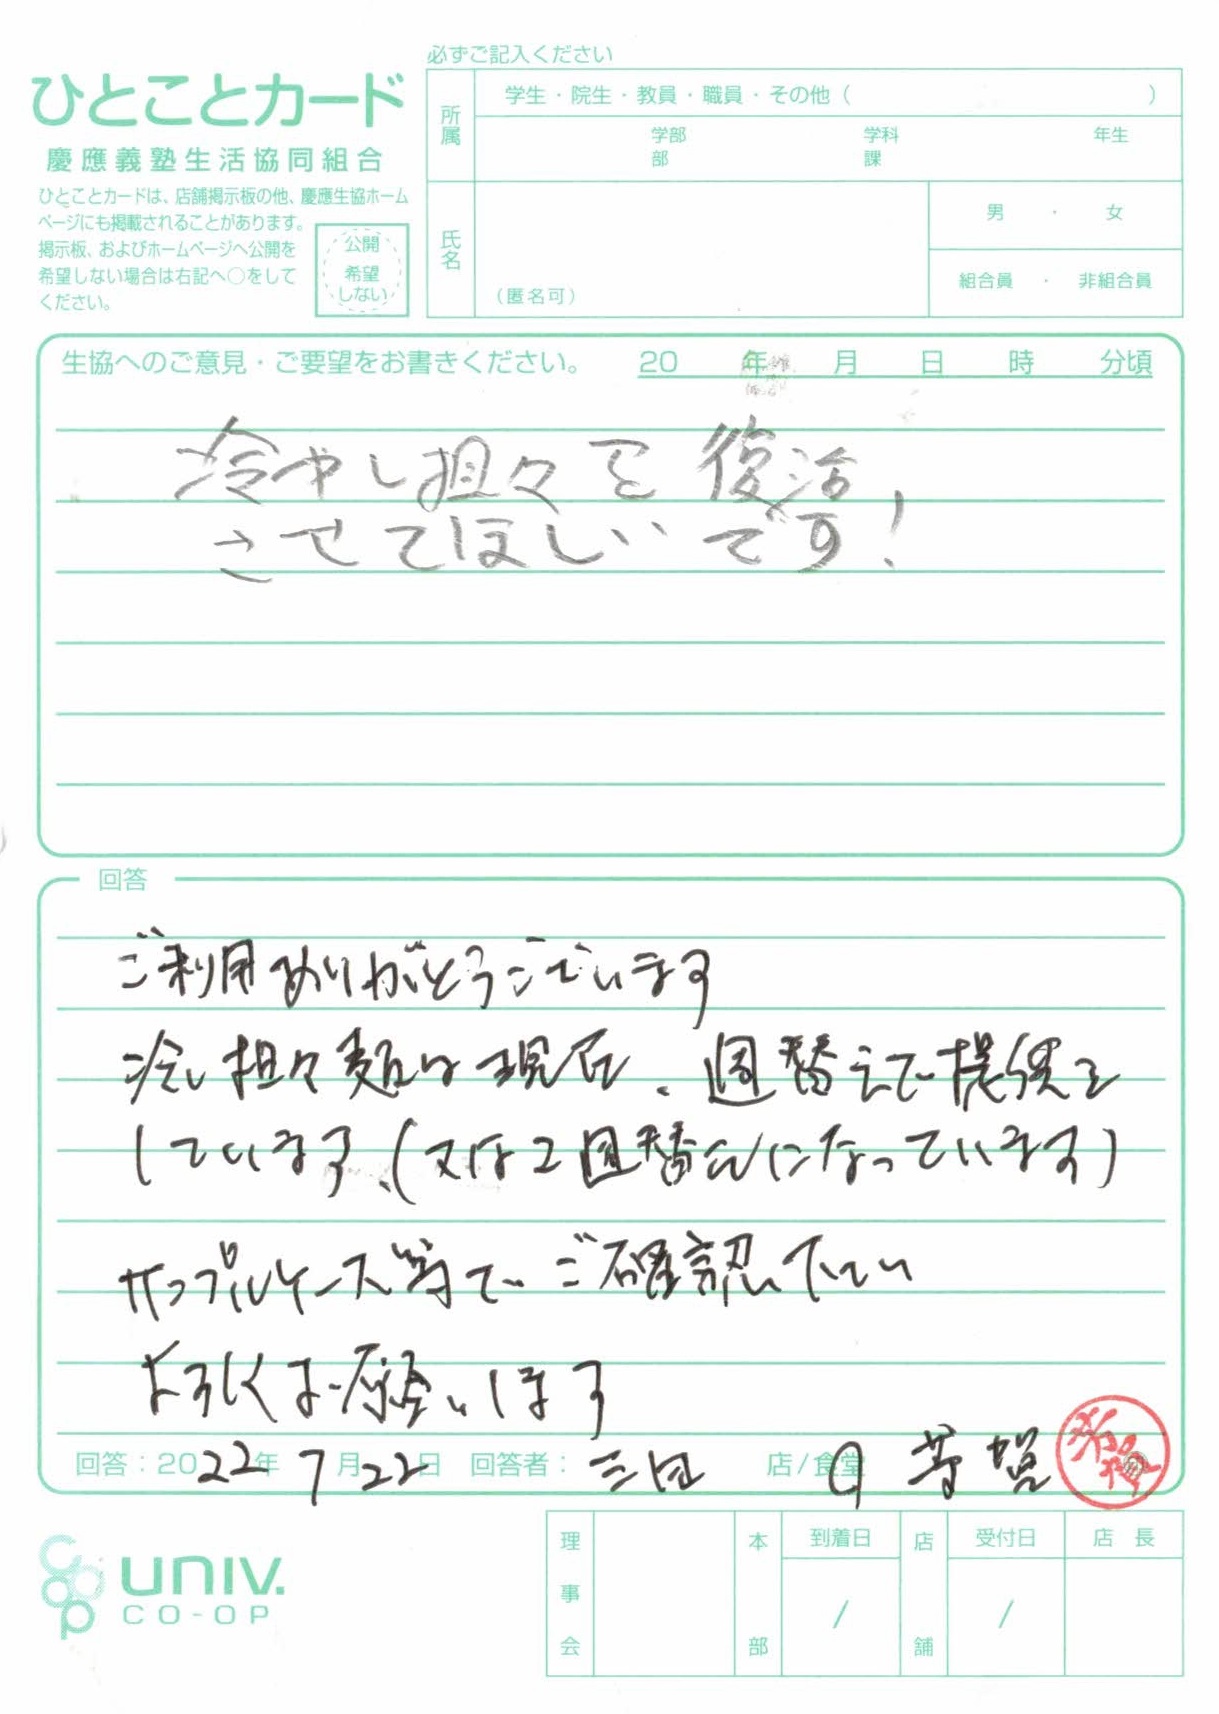 必ずご記入ください
ひとことカード
慶應義塾生活協同組合
ひとことカードは、店舗掲示板の他、慶應生協ホーム
ページにも掲載されることがあります。
掲示板、およびホームページへ公開を
希望しない場合は右記へ○をして
ください。
公開
希望
しない
所属
学生・院生・教員・職員・その他（ ）
学部 学科 年生
部 課
氏名
（匿名可）
男 ・ 女
組合員 ・ 非組合員
生協へのご意見・ご要望をお書きください。 20 年 月 日 時 分頃
冷やし担々を復活
させてほしいです！
回答
ご利用ありがとうございます
冷し担々麺は現在、週替えで提供を
しています、(又は2週替えになっています)
サンプルケース等でご確認下さい
よろしくお願いします
回答：2022年7月22日 回答者： 三田 店/食堂 芳賀
芳賀
univ.
CO-OP
理事会
本部
到着日
/
店舗
受付日
/
店長